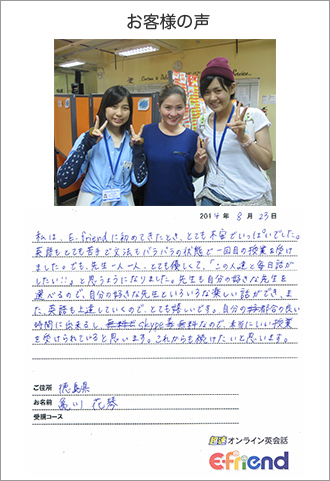 お客様の声
2014年 8月 23日
私は、E-friendに初めてきたとき、とても不安でいっぱいでした。
英語もとても苦手で文法もバラバラの状態で一回目の授業を受け
ました。でも、先生一人一人、とても優しくて、「この人達と毎日話が
したい!!」と思うようになりました。先生も自分の好きな先生を
選べるので、自分の好きな先生といろいろな楽しい話ができ、ま
た、英語も上達していくので、とても嬉しいです。自分の都合の良い
時間に出来るし、Skypeも無料なので、本当にいい授業
を受けられていると思います。これからも続けたいと思います。
ご住所 徳島県
お名前 亀川 花琴
受講コース
超速オンライン英会話
E-friend